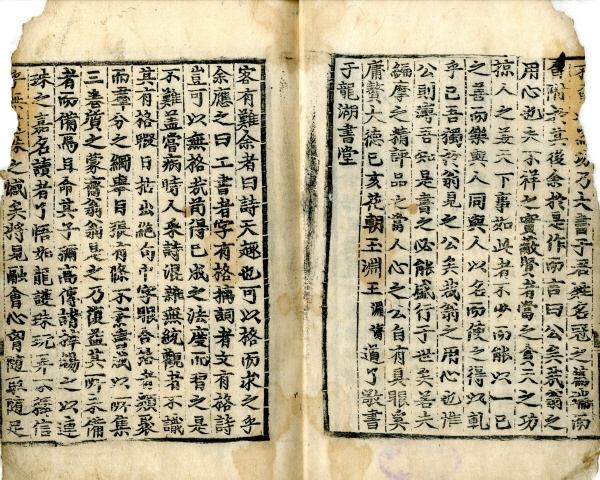 乃大書于君姓名冠之篇端而
書附於其後余於是作而言曰公矣哉翁之
用心也夫不祥之實蔽賢者當之天之功
掠人之美天下事如此者不少而能以一己
之善而樂與人同與人以名而使之得以軋
乎己吾獨於翁見之公矣哉翁之用心也惟
公則溥吾知是書之必能盛行于世矣若夫
編摩之精評品之當人心之公自有具眼奚
庸贅大德己亥花朝玉淵王淵濟道可敬書
于龍湖書堂
客有難余者曰詩天趣也可以格而求之乎
余應之曰工書者字有格摛詞者文有格詩
豈可以無格哉苟得已成之法度而習之是
不難蓋嘗病時人采詩混雜無統觀者不識
其有格暇日拈出絶句中字眼合格者類聚
而羣分之綱舉目張有條不紊以所集
三卷質之蒙齋翁翁是之乃復益其所未備
者而備焉且命其子彌高傳諸梓錫之以連
珠之嘉名讀者了悟如龍護珠玩弄不釋信
乎無遺珠之憾矣將見融會心胸隨取隨足